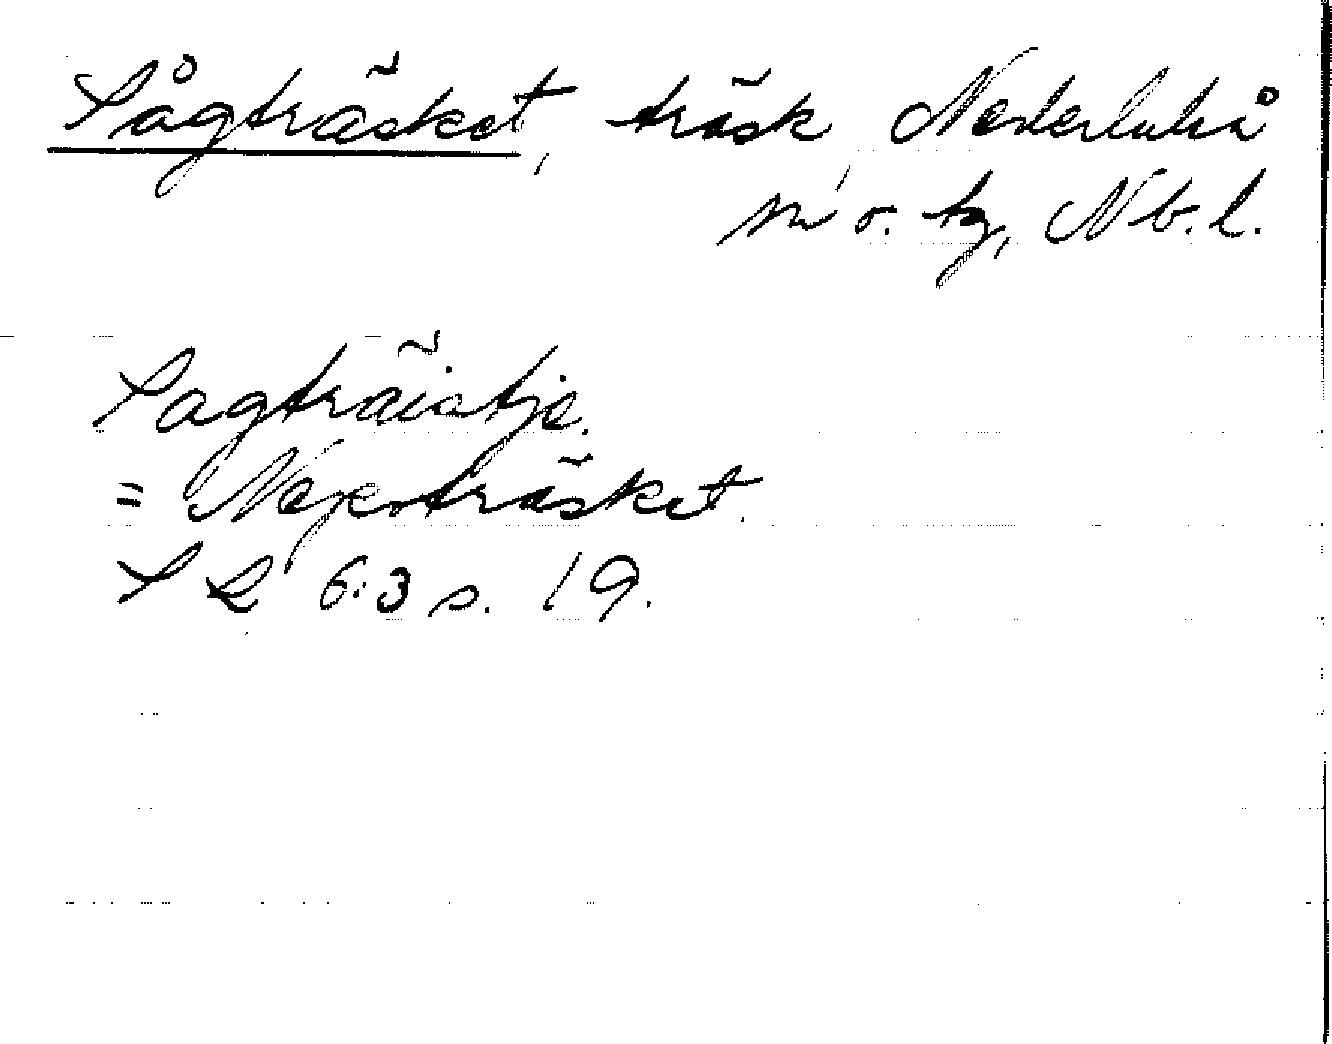 Sågträsket, träsk, Nederluleå
m o. tg, Nb.l.
Sagträistje.
= Nejerträsket.
S L 6:3 s. 19.